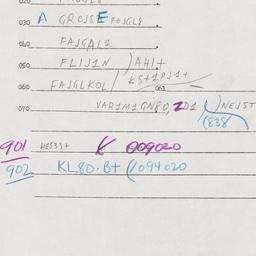 030 A GROJSE FOJGL8
040 FAJGAL1
050 FLIJ1N )AHI+
060 FAJGLKOL/ KS+1PJ1+
061
070 VAR1M1GN80, 2D1 ( )NEJST
(838
901 HE535+ K 009020
902 KL80.B+ (1094020